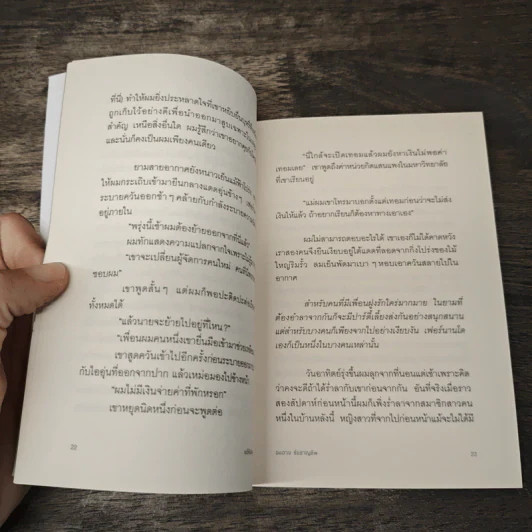 ที่นี่) ทำให้ผมยิ่งประหลาดใจที่เขาหยิบยื่น
ถูกเก็บไว้อย่างดีเพื่อนำออกมาสูบเฉพาะ
สำคัญ เหนือสิ่งอื่นใด ผมรู้สึกว่าเขาอยาก
และนั่นก็คงเป็นผมเพียงคนเดียว
ยามสายอากาศยังหนาวเย็นแม้
ให้ผมกระเถิบเข้ามายืนกลางแดดอุ่นข้างๆ
ระบายควันออกช้าๆ คล้ายกับกำลังระบาย
อยู่ภายใน
“พรุ่งนี้เช้าผมต้องย้ายออกจากที่นี่แล้ว
ผมทักแสดงความแปลกใจ
“เขาจะเปลี่ยนผู้จัดการคนใหม่
ชอบผม”
เขาพูดสั้นๆ แต่ผมก็พอปะติดปะต่อ
ทั้งหมดได้
“แล้วนายจะย้ายไปอยู่ที่ไหน?”
“เพื่อนผมคนหนึ่งเขายื่นมือเข้ามาช่วย
เขาสูดควันเข้าไปอีกครั้งก่อนระบาย
กับไออุ่นที่ออกจากปาก แล้วเหม่อมองไปข้างหน้า
“ผมไม่มีเงินจ่ายค่าที่พักหรอก”
เขาหยุดนิดหนึ่งก่อนจะพูดต่อ
22
“นี่ใกล้จะเปิดเทอมแล้วผมยังหาเงินไม่พอค่า
เทอมเลย” เขาพูดถึงค่าหน่วยกิตแสนแพงในมหาวิทยาลัย
ที่เขาเรียนอยู่
“แม่ผมเขาโทรมาบอกตั้งแต่เทอมก่อนว่าจะไม่ส่ง
เงินให้แล้ว ถ้าอยากเรียนก็ต้องหาทางเอาเอง”
ผมไม่สามารถตอบอะไรได้ เขาเองก็ไม่ได้คาดหวัง
เราสองคนจึงยืนเงียบอยู่ใต้แดดที่ลอดจากกิ่งโปร่งของไม้
ใหญ่ริมรั้ว ลมเย็นพัดมาเบาๆ หอบเอาควันสลายไปใน
อากาศ
สำหรับคนที่มีเพื่อนฝูงรักใคร่มากมาย ในยามที่
ต้องอำลาจากกันก็จะมีปาร์ตี้เลี้ยงส่งกันอย่างสนุกสนาน
แต่สำหรับบางคนก็เพียงจากไปอย่างเงียบงัน เฟอร์นานโด
เองก็เป็นหนึ่งในบางคนเหล่านั้น
วันอาทิตย์รุ่งขึ้นผมลุกจากที่นอนแต่เช้าเพราะคิด
ว่าคงจะดีถ้าได้ร่ำลากับเขาก่อนจากกัน อันที่จริงเมื่อราว
สองสัปดาห์ก่อนหน้านี้ผมก็เพิ่งร่ำลาจากสมาชิกสาวคน
หนึ่งในบ้านหลังนี้ หญิงสาวที่จากไปก่อนหน้าแม้จะไม่ได้มี
23